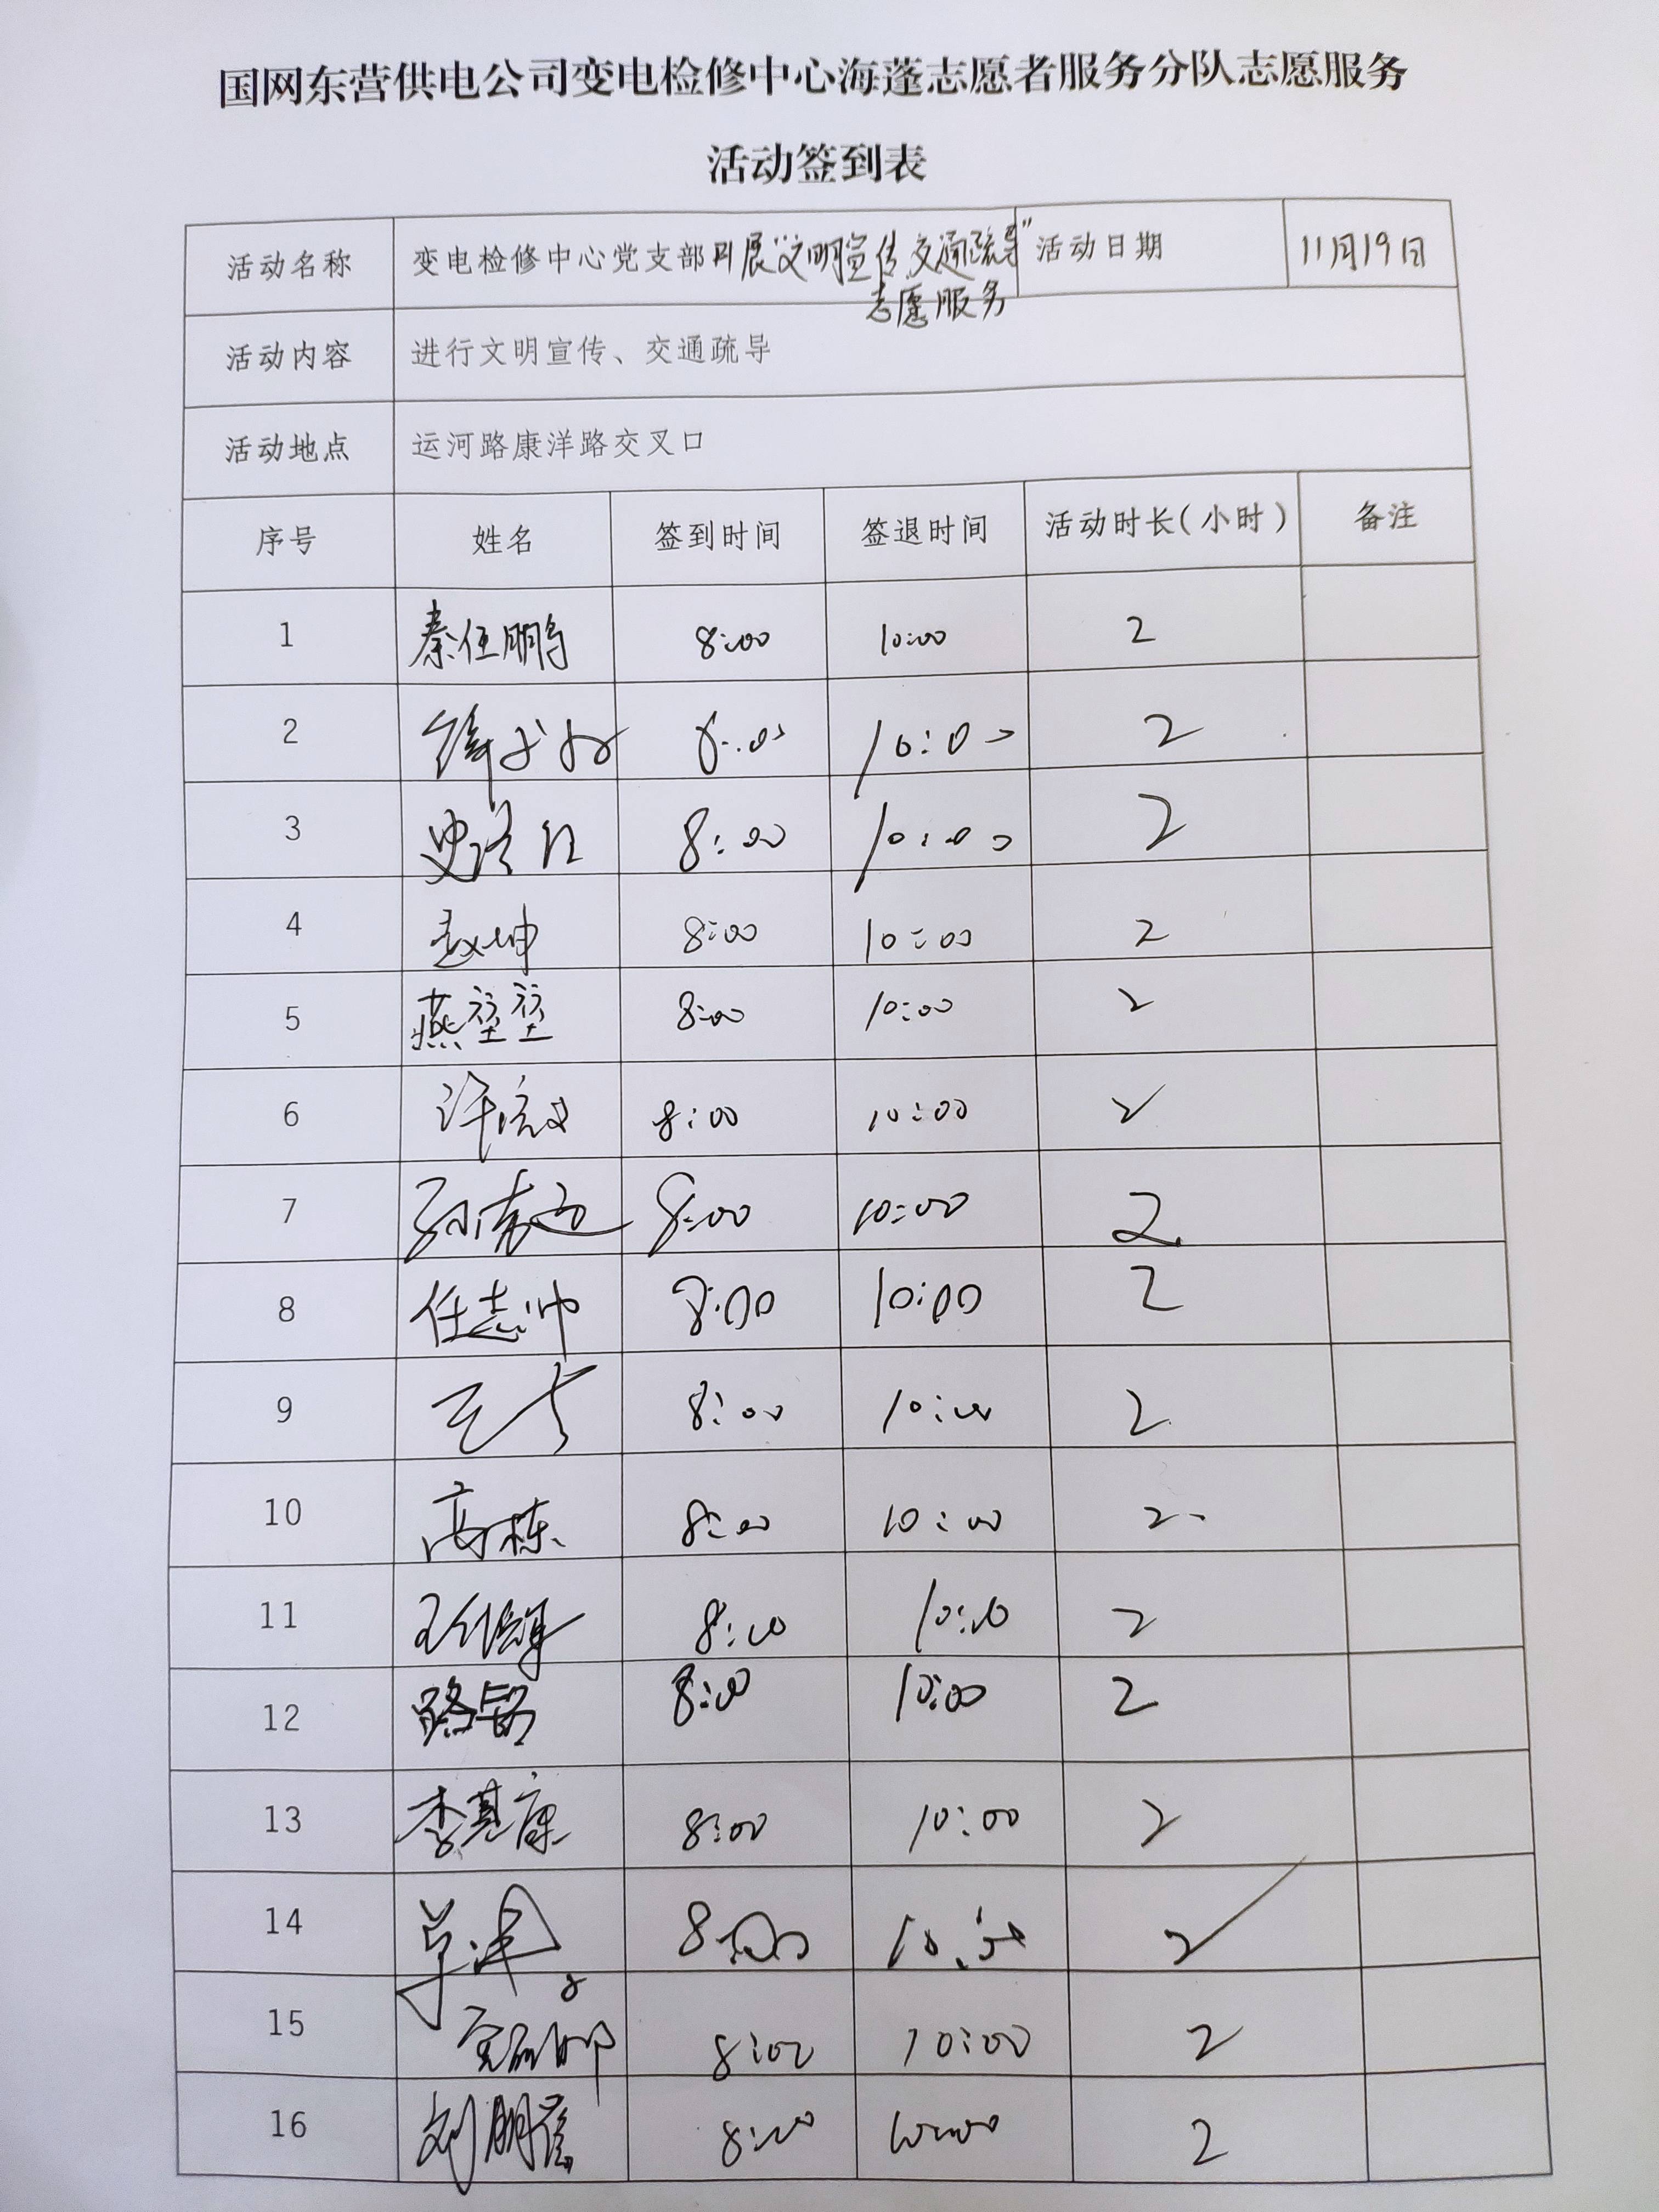 国网东营供电公司变电检修中心海蓬志愿者服务分队志愿服务
活动签到表
活动名称 变电检修中心党支部开展“文明宣传、交通疏导” 活动日期 11月19日
志愿服务
活动内容 进行文明宣传、交通疏导
活动地点 运河路康洋路交叉口
序号 姓名 签到时间 签退时间 活动时长(小时) 备注
1 秦任鹏 8:00 10:00 2
2 8:00 10:00 2
3 8:00 10:00 2
4 赵坤 8:00 10:00 2
5 燕莹莹 8:00 10:00 2
6 8:00 10:00 2
7 8:00 10:00 2
8 任志帅 8:00 10:00 2
9 8:00 10:00 2
10 高栋 8:00 10:00 2
11 8:00 10:00 2
12 8:00 10:00 2
13 李其康 8:00 10:00 2
14 8:00 10:00 2
15 8:00 10:00 2
16 8:00 10:00 2